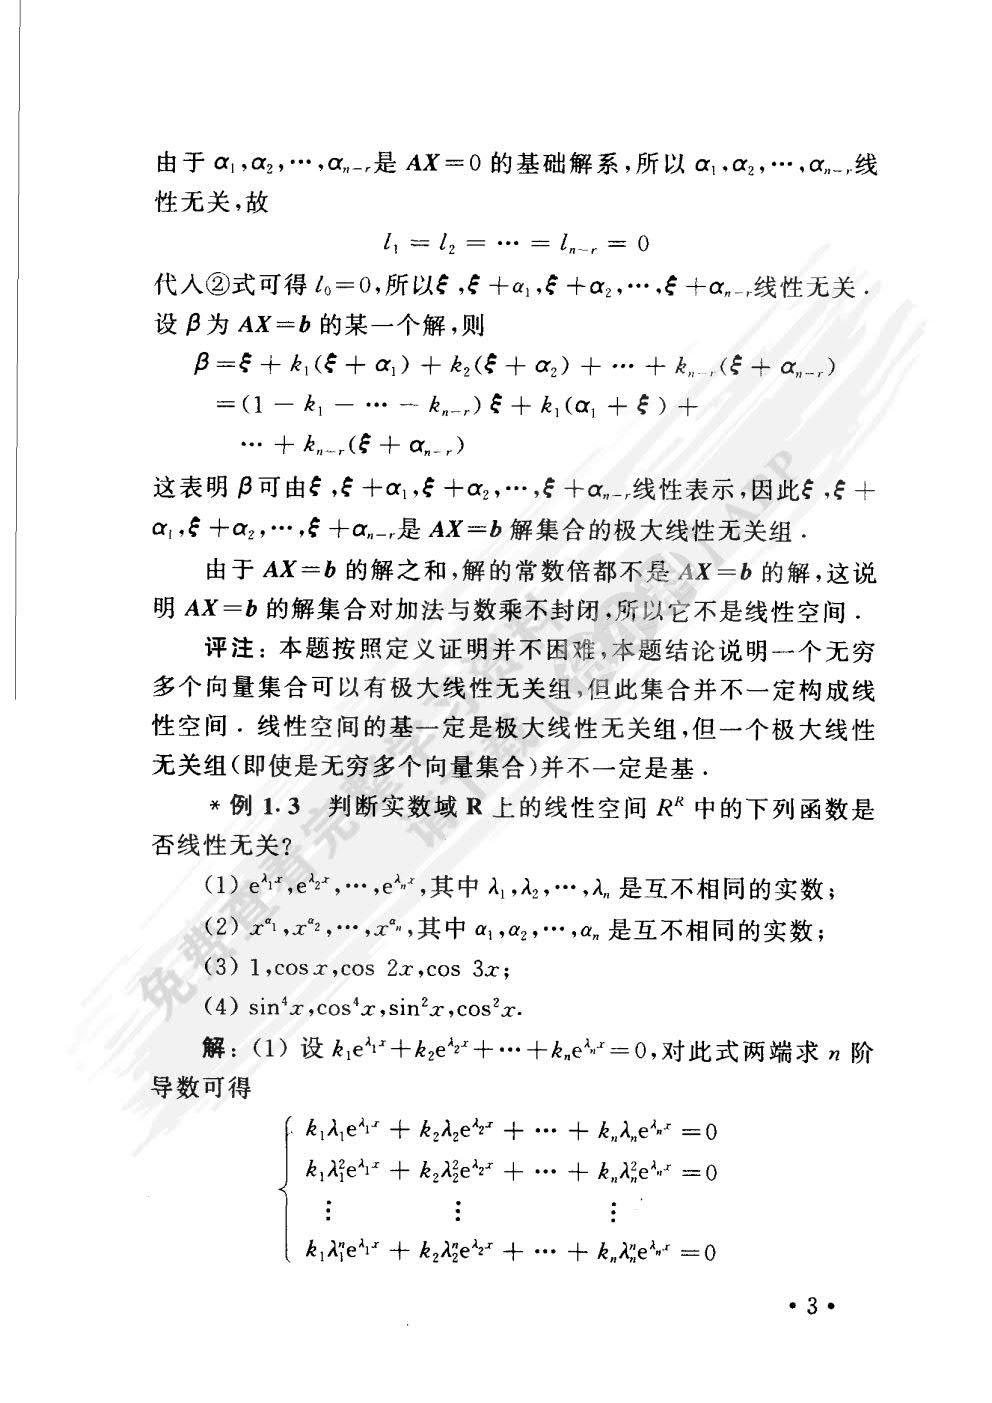 由于 α₁,α₂,⋯,αₙ₋ᵣ是 AX=0 的基础解系,所以 α₁,α₂,⋯,αₙ₋ᵣ线
性无关,故
l₁ = l₂ = ⋯ = lₙ₋ᵣ = 0
代入②式可得 l₀=0,所以ξ,ξ+α₁,ξ+α₂,⋯,ξ+αₙ₋ᵣ线性无关.
设 β为 AX=b 的某一个解,则
β=ξ + k₁(ξ + α₁) + k₂(ξ + α₂) + ⋯ + kₙ₋ᵣ(ξ + αₙ₋ᵣ)
=(1 − k₁ − ⋯ − kₙ₋ᵣ)ξ + k₁(α₁ + ξ) +
⋯ + kₙ₋ᵣ(ξ + αₙ₋ᵣ)
这表明 β可由ξ,ξ+α₁,ξ+α₂,⋯,ξ+αₙ₋ᵣ线性表示,因此ξ,ξ+
α₁,ξ+α₂,⋯,ξ+αₙ₋ᵣ是 AX=b 解集合的极大线性无关组.
由于 AX=b 的解之和,解的常数倍都不是 AX=b 的解,这说
明 AX=b 的解集合对加法与数乘不封闭,所以它不是线性空间.
评注: 本题按照定义证明并不困难,本题结论说明一个无穷
多个向量集合可以有极大线性无关组,但此集合并不一定构成线
性空间. 线性空间的基一定是极大线性无关组,但一个极大线性
无关组(即使是无穷多个向量集合)并不一定是基.
*例 1.3 判断实数域 R 上的线性空间 Rᴿ 中的下列函数是
否线性无关?
(1) e^{λ₁x},e^{λ₂x},⋯,e^{λₙx},其中 λ₁,λ₂,⋯,λₙ 是互不相同的实数;
(2) x^{α₁},x^{α₂},⋯,x^{αₙ},其中 α₁,α₂,⋯,αₙ 是互不相同的实数;
(3) 1,cosx,cos 2x,cos 3x;
(4) sin⁴x,cos⁴x,sin²x,cos²x.
解: (1) 设 k₁e^{λ₁x}+k₂e^{λ₂x}+⋯+kₙe^{λₙx}=0,对此式两端求 n 阶
导数可得
k₁λ₁e^{λ₁x} + k₂λ₂e^{λ₂x} + ⋯ + kₙλₙe^{λₙx} =0
k₁λ₁²e^{λ₁x} + k₂λ₂²e^{λ₂x} + ⋯ + kₙλₙ²e^{λₙx} =0
⋮ ⋮ ⋮
k₁λ₁ⁿe^{λ₁x} + k₂λ₂ⁿe^{λ₂x} + ⋯ + kₙλₙⁿe^{λₙx} =0
• 3 •